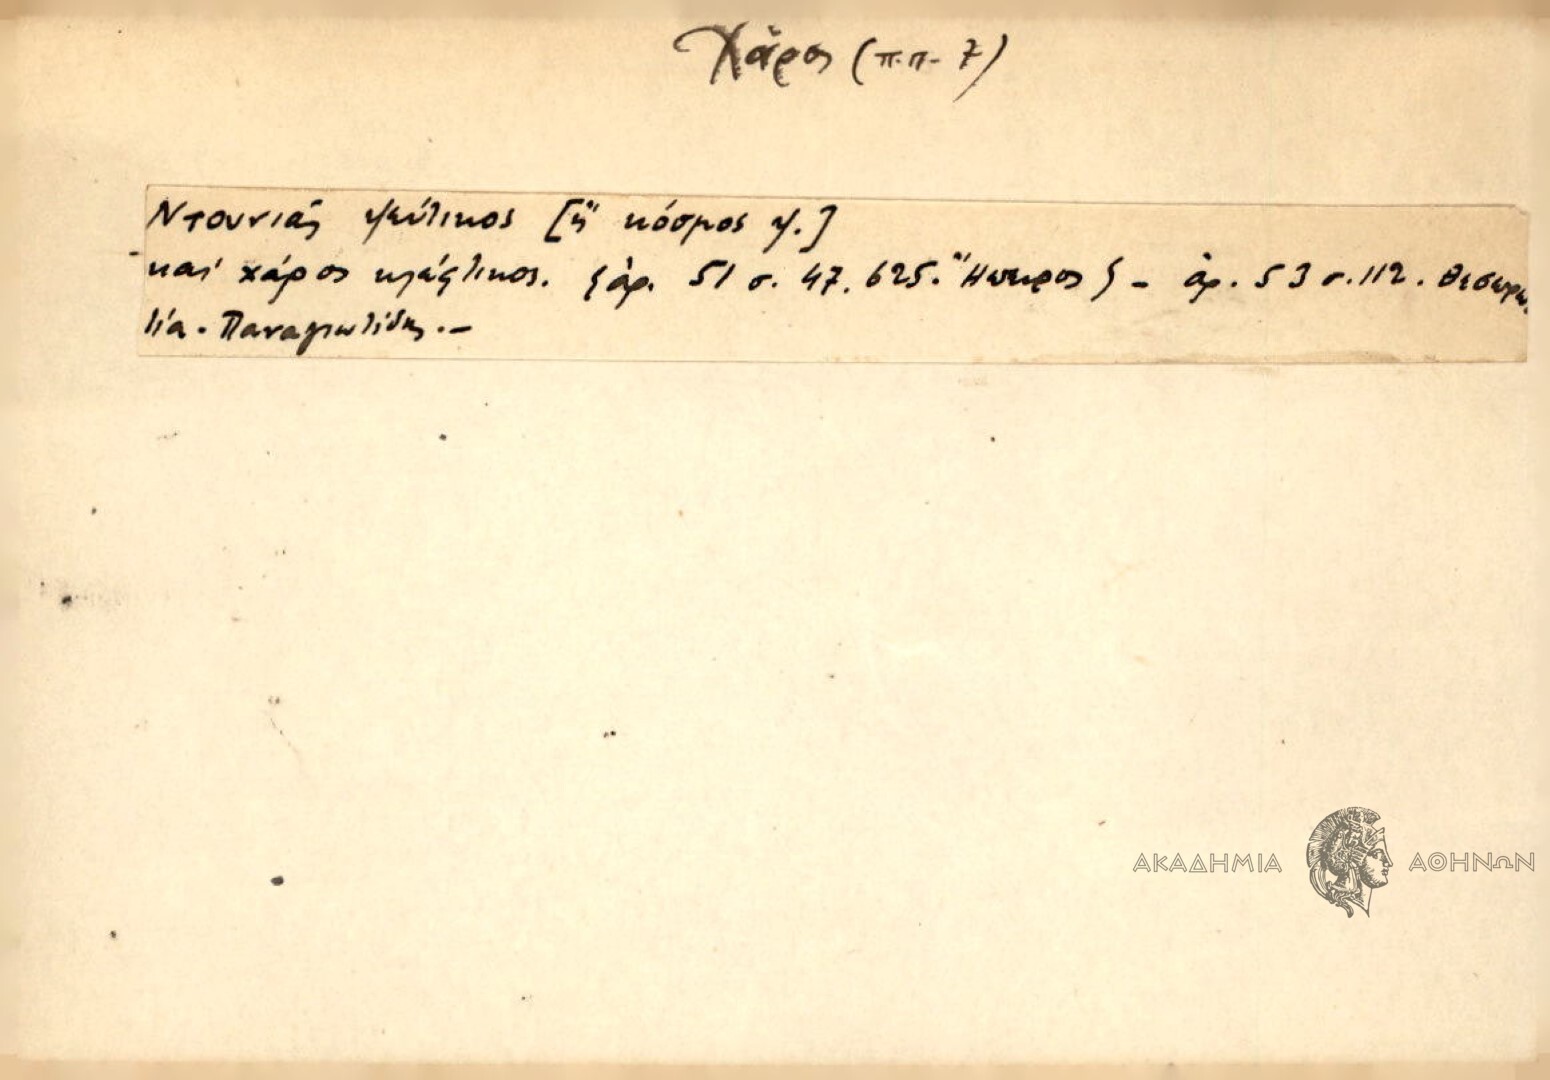 Χάρος (π.π. 7)
Ντουνιάς ψεύτικος [ἢ κόσμος ψ.]
καὶ χάρος κλέφτικος. {ἀρ. 51 σ. 47. 625. Ἤπειρος} - ἀρ. 53 σ. 112. Θεσπρω
τία. Παναγιωτίδης. -
ΑΚΑΔΗΜΙΑ ΑΘΗΝΩΝ